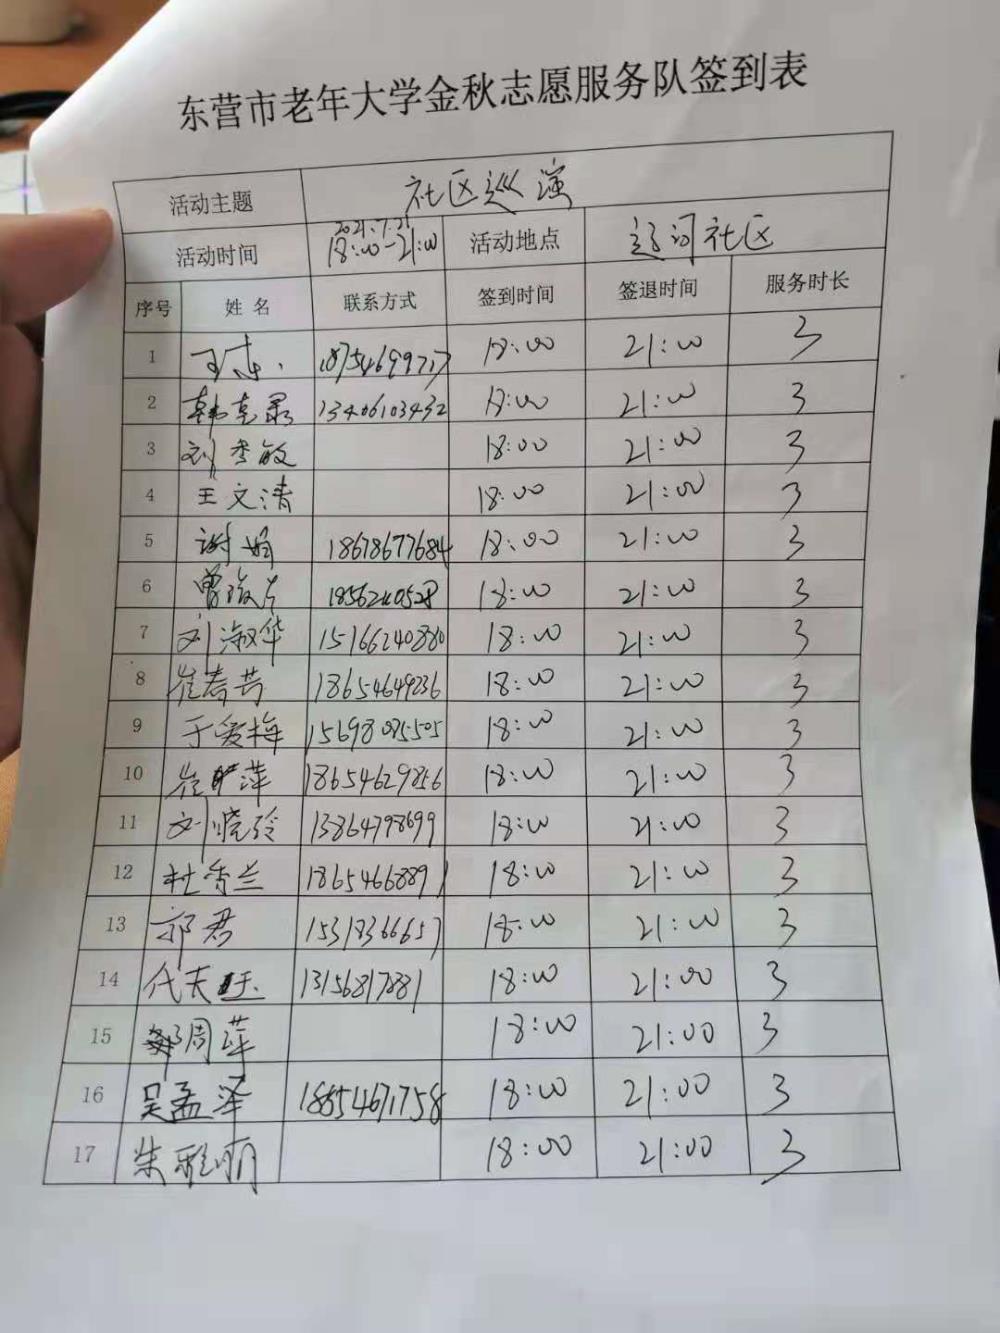 东营市老年大学金秋志愿服务队签到表
活动主题 社区巡演
活动时间 2021.7.21 18:00-21:00 活动地点 辽河社区
序号 姓名 联系方式 签到时间 签退时间 服务时长
1 18:00 21:00 3
2 13406103432 18:00 21:00 3
3 刘秀敏 18:00 21:00 3
4 王文清 18:00 21:00 3
5 谢娟 18678677684 18:00 21:00 3
6 18:00 21:00 3
7 刘淑华 15166240880 18:00 21:00 3
8 崔春芳 18654649236 18:00 21:00 3
9 于爱梅 15698085505 18:00 21:00 3
10 18654629856 18:00 21:00 3
11 刘晓玲 13864798699 18:00 21:00 3
12 杜秀兰 18654668891 18:00 21:00 3
13 郭君 15318366657 18:00 21:00 3
14 13156817881 18:00 21:00 3
15 郑周萍 18:00 21:00 3
16 吴孟泽 18854671758 18:00 21:00 3
17 朱雅丽 18:00 21:00 3